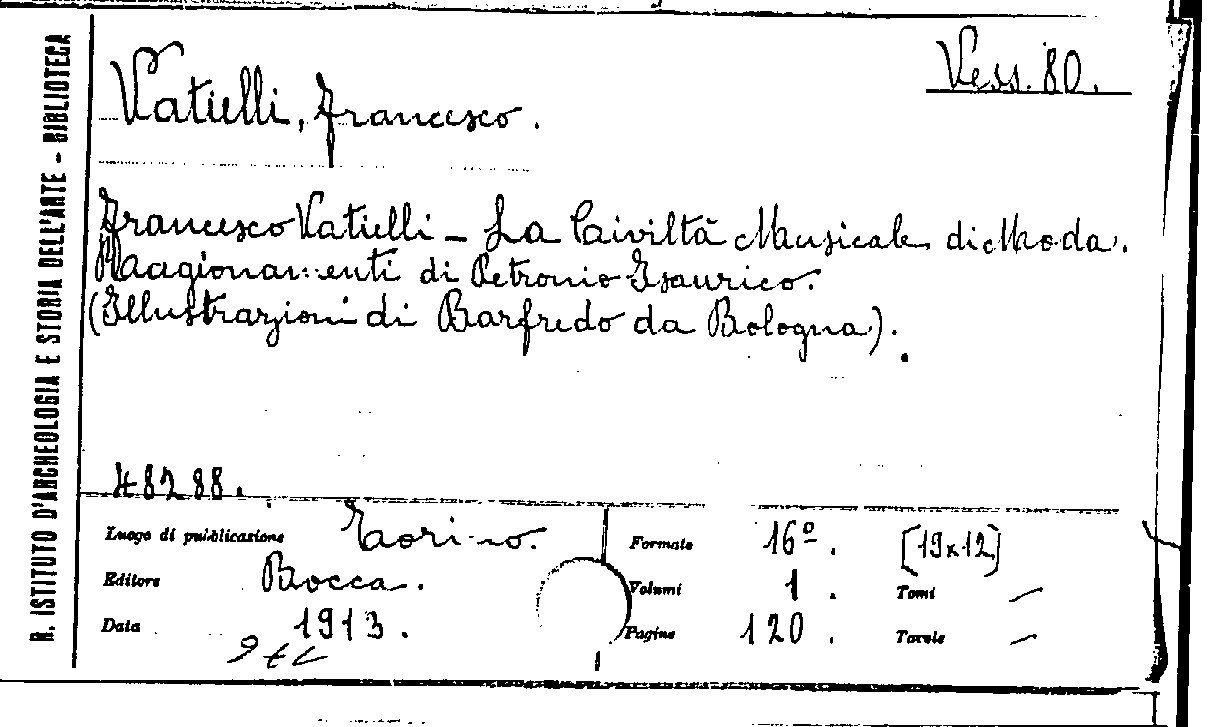 R. ISTITUTO D'ARCHEOLOGIA E STORIA DELL'ARTE - BIBLIOTECA
Vess. 80.
Vatielli, Francesco.
Francesco Vatielli - La Civiltà Musicale di Moda.
Ragionamenti di Petronio Isaurico.
(Illustrazioni di Barfredo da Bologna).
48288.
Luogo di pubblicazione Torino.
Formato 16º. [19x12]
Editore Bocca.
Volumi 1. Tomi —
Data 1913.
Pagine 120. Tavole —